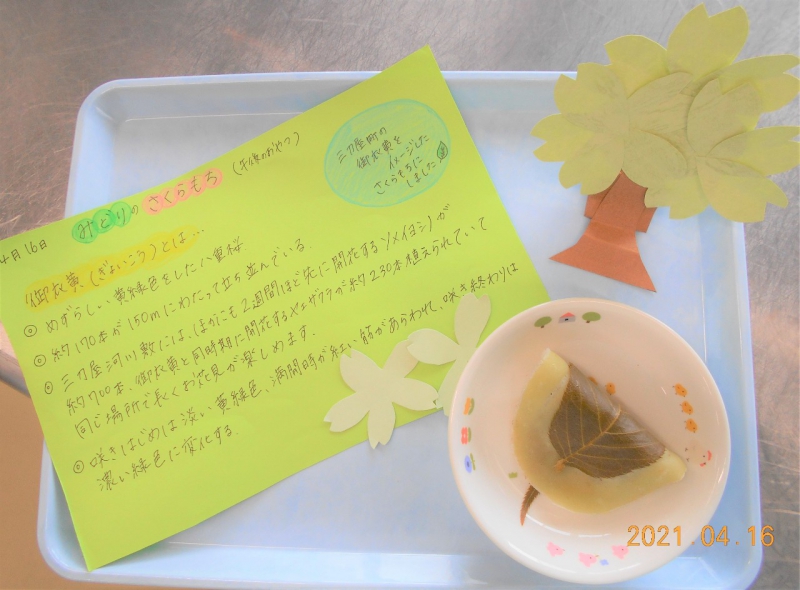 4月16日
みどりのさくらもち (午後のおやつ)
三刀屋町の
御衣黄を
イメージした
さくらもちに
しました
御衣黄(ぎょいこう)とは…
◎ めずらしい黄緑色をした八重桜
◎ 約170本が150mにわたって立ち並んでいる.
◎ 三刀屋河川敷には、ほかにも2週間ほど先に開花するソメイヨシノが
約700本、御衣黄と同時期に開花するヤエザクラが約230本植えられていて
同じ場所で長くお花見が楽しめます.
◎ 咲きはじめは淡い黄緑色、満開時が紅い筋があらわれ、咲き終わりは
濃い緑色に変化する.
2021.04.16